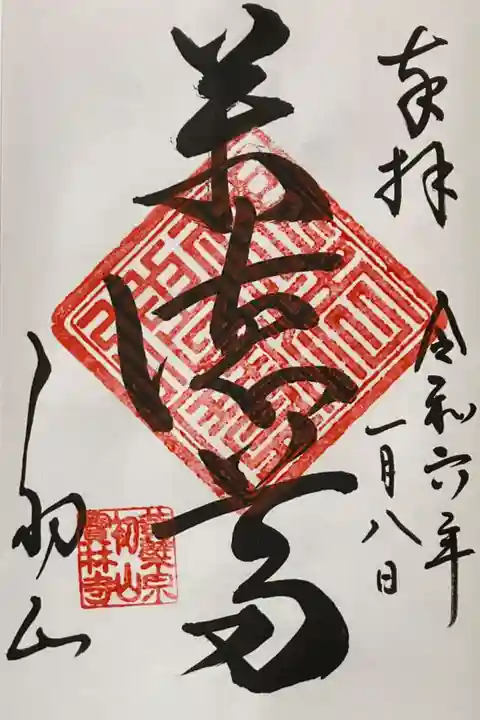 奉拝
令和六年
一月八日
萬徳尊
初山
黄檗宗
初山
寶林寺